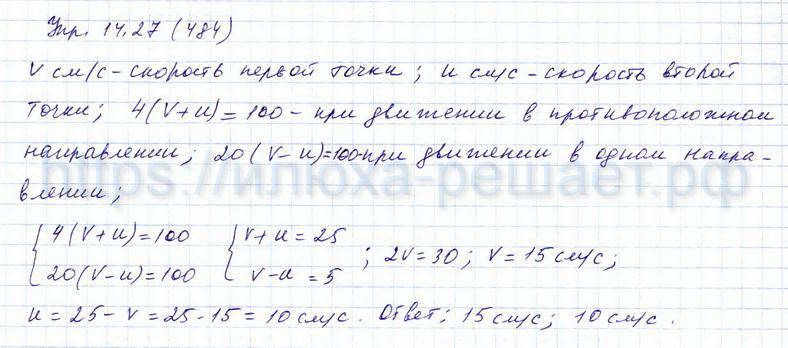 Упр. 14.27 (484)
V см/с - скорость первой точки; u см/с - скорость второй
точки; 4(V+u)=100 - при движении в противоположном
направлении; 20(V-u)=100-при движении в одном напра-
влении;
https://илюха-решает.рф
{4(V+u)=100 {V+u=25
{20(V-u)=100 {V-u=5 ; 2V=30; V=15 см/с;
u=25-V=25-15=10 см/с. Ответ: 15 см/с; 10 см/с.